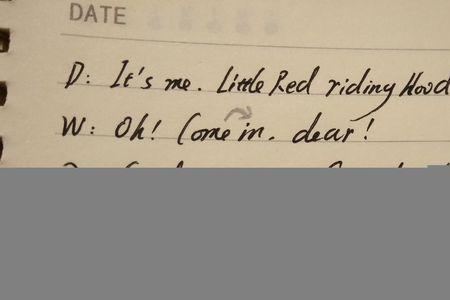 DATE
D: It's me. Little Red riding Hood
W: Oh! Come in. dear!